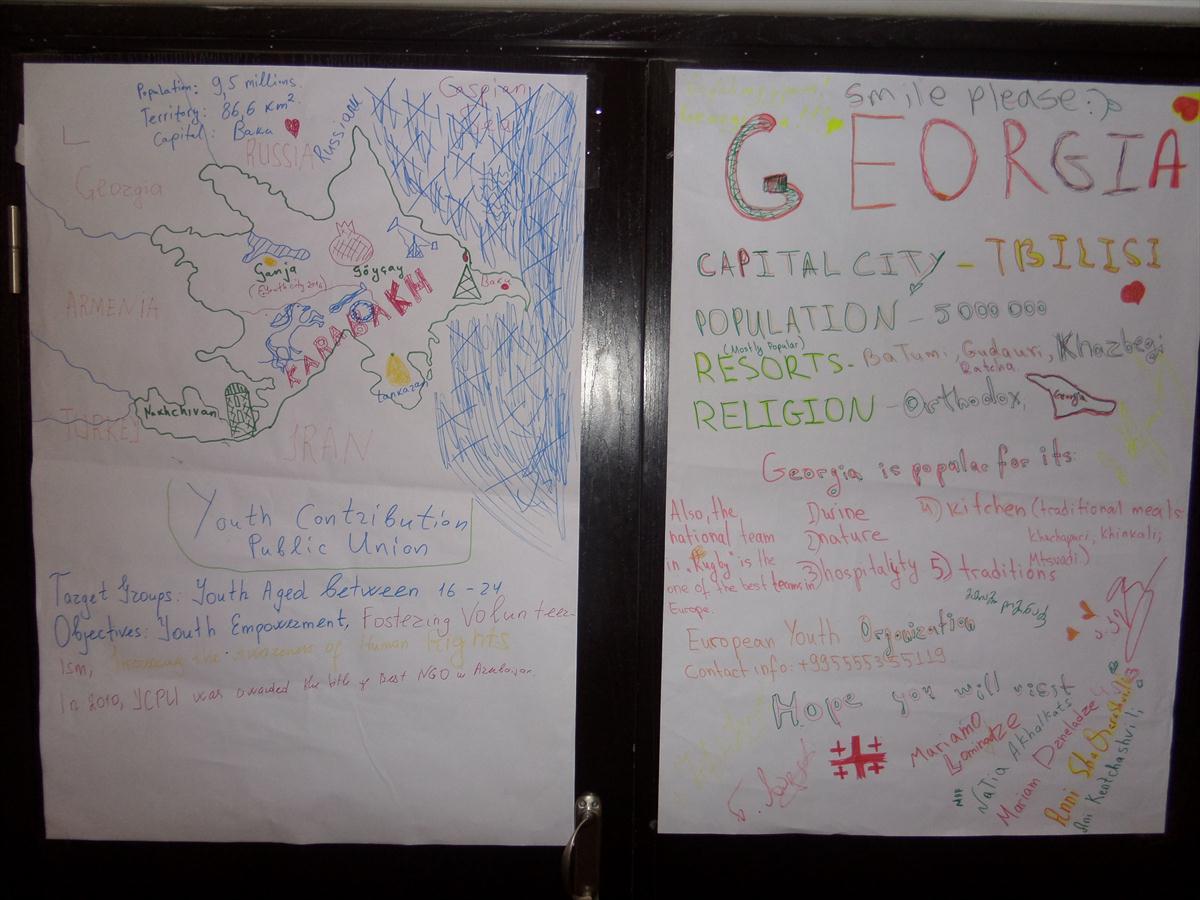 Population: 9,5 millions.
Territory: 86,6 km².
Capital: Baku
RUSSIA
Caspian
Sea
Georgia
Ganja
Göyçay
ARMENIA
Baku
KARABAKH
Lankaran
Nakhchivan
TURKEY
IRAN
Youth Contribution
Public Union
Target Groups: Youth Aged between 16-24
Objectives: Youth Empowerment, Fostering Volunteer-
ism, Increasing the awareness of Human Rights
In 2010, YCPU was awarded the title of Best NGO in Azerbaijan.
Smile please :)
GEORGIA
CAPITAL CITY - TBILISI
POPULATION - 5 000 000
(Mostly Popular)
RESORTS - BaTumi, Gudauri, Khazbegi
Ratcha.
RELIGION - Orthodox.
Georgia
Georgia is popular for its:
Also, the
national team
in "Rugby" is the
one of the best teams in
Europe.
1) wine
2) nature
3) hospitalyty
4) kitchen (traditional meals-
khachapuri, khinkali,
Mtsvadi.)
5) traditions
European Youth Organization
Contact info: +99555 53 55 119
Hope you will visit
Mariam
Lominadze
Natia Akhalkats
Mariam Dzneladze
Anni
Ani Kentchashvili